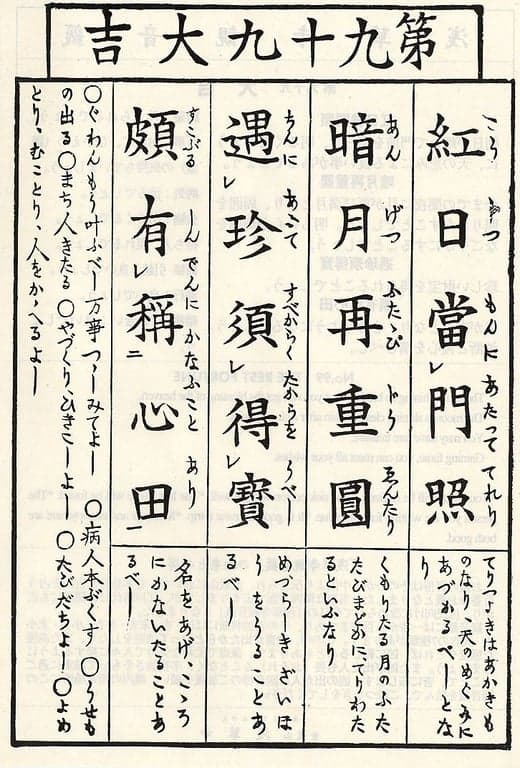 第九十九大吉
こうじつ もんに あたって てれり
紅日當レ門照
てりつきはあかきも
のなり 天のめぐみに
あづかるべしとな
り
あん げつ ふたゝび ゑんたり
暗月再重圓
くもりたる月のふた
たびまどかにてりわた
るといふなり
ちんに あふて すべからく たからを うべし
遇レ珍須レ得レ寶
めづらしきざいほ
うをうることあ
るべし
すこぶる しんでんに かなふこと あり
頗有レ稱二心田一
名をあげ、こゝろ
にかないたることあ
るべし
〇ぐわんもう叶ふべし 万事つゝしみてよし 〇病人本ぶくす 〇うせも
の出る 〇まち人きたる 〇やづくりひきこしよし 〇たびだちよし 〇よめ
とり、むことり、人をかゝへるよし